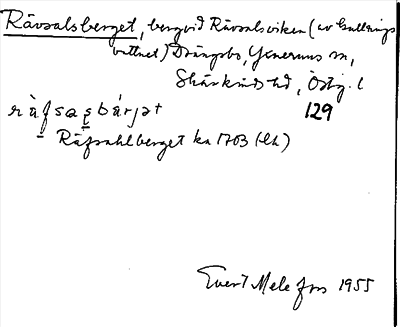 Rävsalsberget, berg vid Rävsalsviken (av Gullnings
vattnet) Drängsbo, Yxnerums sn,
Skärkinds hd, Östg. l
129
ràfsaʂbárjət
Räfsahlberget ka 1703 (Lh)
Evert Melefors 1955